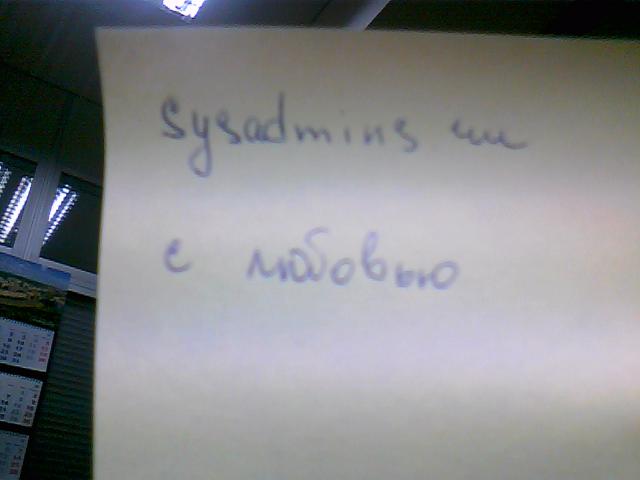 sysadmins ии
с любовью